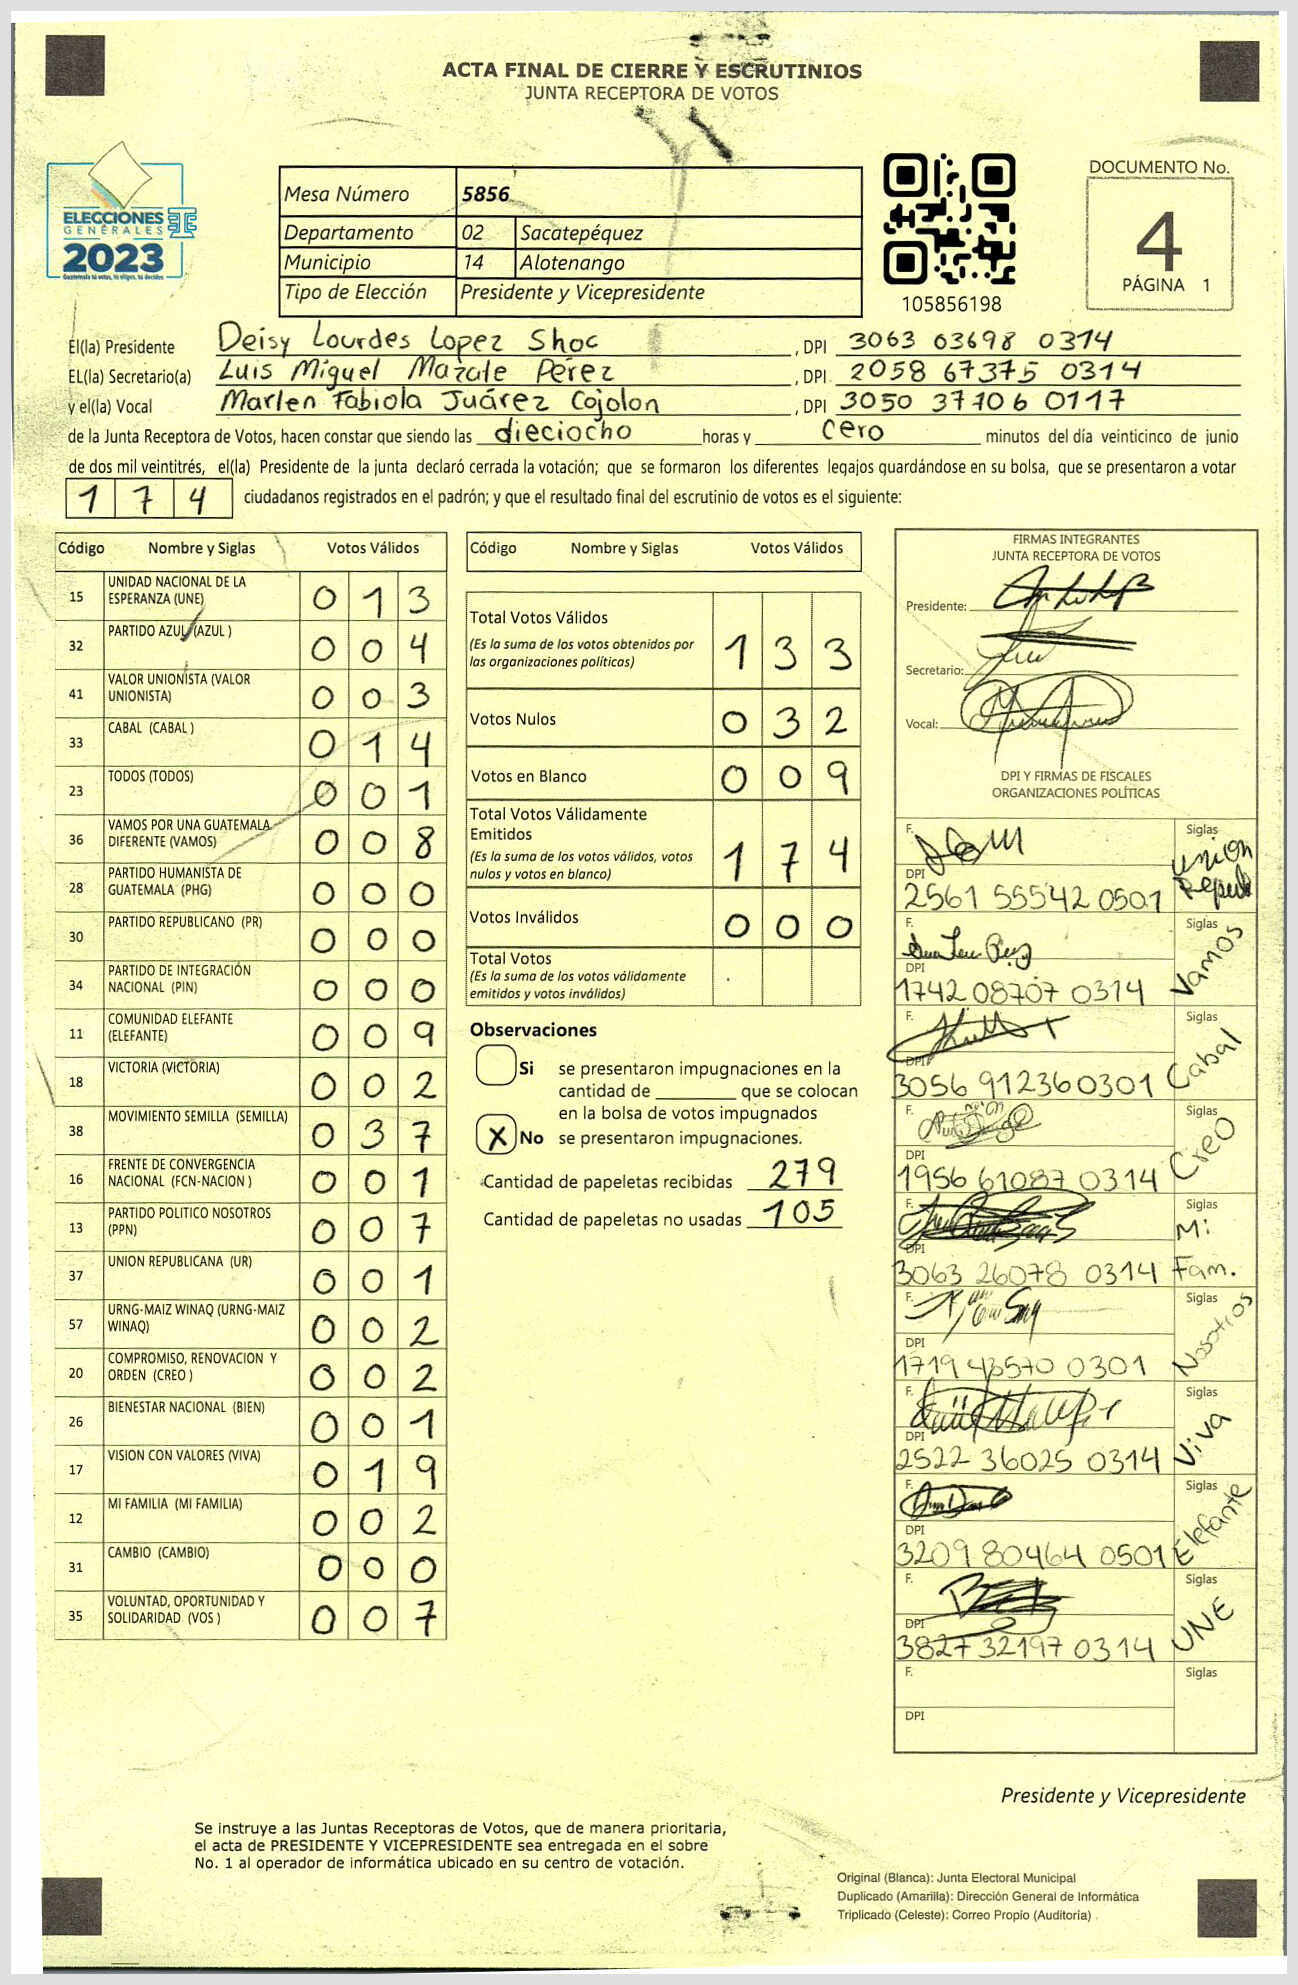 ACTA FINAL DE CIERRE Y ESCRUTINIOS
JUNTA RECEPTORA DE VOTOS
ELECCIONES
GENERALES
2023
Guatemala tú votas, tú eliges, tú decides
Mesa Número 5856
Departamento 02 Sacatepéquez
Municipio 14 Alotenango
Tipo de Elección Presidente y Vicepresidente
105856198
DOCUMENTO No.
4
PÁGINA 1
El(la) Presidente Deisy Lourdes Lopez Shoc , DPI 3063 03698 0314
EL(la) Secretario(a) Luis Miguel Mazate Pérez , DPI 2058 67375 0314
y el(la) Vocal Marlen Fabiola Juárez Cojolon , DPI 3050 37706 0117
de la Junta Receptora de Votos, hacen constar que siendo las dieciocho horas y cero minutos del día veinticinco de junio
de dos mil veintitrés, el(la) Presidente de la junta declaró cerrada la votación; que se formaron los diferentes legajos guardándose en su bolsa, que se presentaron a votar
174 ciudadanos registrados en el padrón; y que el resultado final del escrutinio de votos es el siguiente:
Código Nombre y Siglas Votos Válidos
15 UNIDAD NACIONAL DE LA ESPERANZA (UNE) 013
32 PARTIDO AZUL (AZUL ) 004
41 VALOR UNIONISTA (VALOR UNIONISTA) 003
33 CABAL (CABAL ) 014
23 TODOS (TODOS) 001
36 VAMOS POR UNA GUATEMALA DIFERENTE (VAMOS) 008
28 PARTIDO HUMANISTA DE GUATEMALA (PHG) 000
30 PARTIDO REPUBLICANO (PR) 000
34 PARTIDO DE INTEGRACIÓN NACIONAL (PIN) 000
11 COMUNIDAD ELEFANTE (ELEFANTE) 009
18 VICTORIA (VICTORIA) 002
38 MOVIMIENTO SEMILLA (SEMILLA) 037
16 FRENTE DE CONVERGENCIA NACIONAL (FCN-NACION ) 001
13 PARTIDO POLITICO NOSOTROS (PPN) 007
37 UNION REPUBLICANA (UR) 001
57 URNG-MAIZ WINAQ (URNG-MAIZ WINAQ) 002
20 COMPROMISO, RENOVACION Y ORDEN (CREO ) 002
26 BIENESTAR NACIONAL (BIEN) 001
17 VISION CON VALORES (VIVA) 019
12 MI FAMILIA (MI FAMILIA) 002
31 CAMBIO (CAMBIO) 000
35 VOLUNTAD, OPORTUNIDAD Y SOLIDARIDAD (VOS ) 007
Código Nombre y Siglas Votos Válidos
Total Votos Válidos 133
(Es la suma de los votos obtenidos por
las organizaciones políticas)
Votos Nulos 032
Votos en Blanco 009
Total Votos Válidamente
Emitidos 174
(Es la suma de los votos válidos, votos
nulos y votos en blanco)
Votos Inválidos 000
Total Votos
(Es la suma de los votos válidamente
emitidos y votos inválidos)
Observaciones
Si se presentaron impugnaciones en la
cantidad de ________ que se colocan
en la bolsa de votos impugnados
X No se presentaron impugnaciones.
Cantidad de papeletas recibidas 279
Cantidad de papeletas no usadas 105
FIRMAS INTEGRANTES
JUNTA RECEPTORA DE VOTOS
Presidente:
Secretario:
Vocal:
DPI Y FIRMAS DE FISCALES
ORGANIZACIONES POLÍTICAS
F. Siglas Union Repub
DPI 2561 55542 0501
F. Siglas Vamos
DPI 1742 08707 0314
F. Siglas Cabal
DPI 3056 91236 0301
F. Siglas Creo
DPI 1956 61087 0314
F. Siglas Mi Fam.
DPI 3063 26078 0314
F. Siglas Nosotros
DPI 1719 43570 0301
F. Siglas Viva
DPI 2522 36025 0314
F. Siglas Elefante
DPI 3209 80464 0501
F. Siglas UNE
DPI 3827 32197 0314
F. Siglas
DPI
Presidente y Vicepresidente
Se instruye a las Juntas Receptoras de Votos, que de manera prioritaria,
el acta de PRESIDENTE Y VICEPRESIDENTE sea entregada en el sobre
No. 1 al operador de informática ubicado en su centro de votación.
Original (Blanca): Junta Electoral Municipal
Duplicado (Amarilla): Dirección General de Informática
Triplicado (Celeste): Correo Propio (Auditoría)